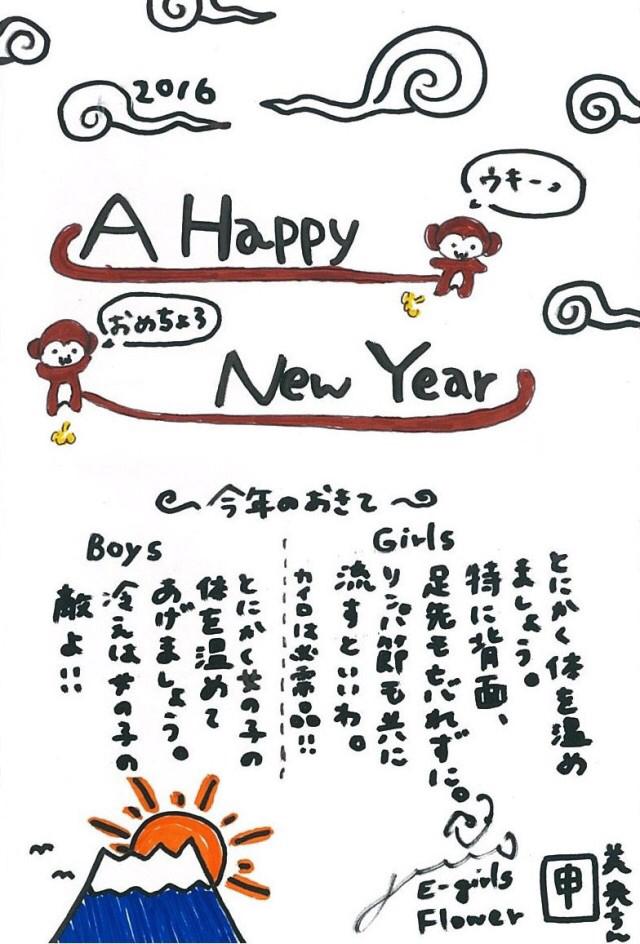 2016
A Happy
ウキーっ
おめちょろ
New Year
今年のおきて
Girls
とにかく体を温め
ましょう。
特に背面、
足先も忘れずに。
リンパ節も共に
流すといいわ。
カイロは必需品!!
Boys
とにかく女の子の
体を温めて
あげましょう。
冷えは女の子の
敵よ!!
E-girls
Flower
申